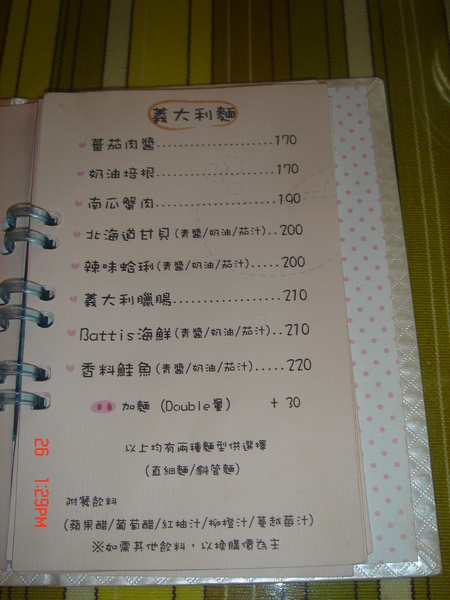 義大利麵
蕃茄肉醬..................170
奶油培根..................170
南瓜蟹肉..................190
北海道甘貝(青醬/奶油/茄汁)..200
辣味蛤琍(青醬/奶油/茄汁).....200
義大利臘腸.................210
Battis海鮮(青醬/奶油/茄汁)..210
香料鮭魚(青醬/奶油/茄汁).....220
加麵 (Double量) +30
以上均有兩種麵型供選擇
(直細麵/斜管麵)
附餐飲料
(蘋果醋/葡萄醋/紅柚汁/柳橙汁/蔓越莓汁)
※如需其他飲料，以換購價為主
26 1:29PM